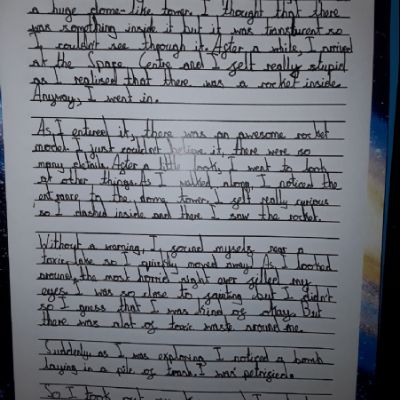 a huge dome-like tower. I thought that there
was something inside it but it was translucent so
I couldn't see through it. After a while, I arrived
at the Space Centre and I felt really stupid
as I realised that there was a rocket inside.
Anyway, I went in.
As I entered it, there was an awesome rocket
model. I just couldn't believe it, there were so
many details. After a little look, I went to look
at other things. As I walked along, I noticed the
entrance to the dome tower. I felt really curious
so I dashed inside and there I saw the rocket.
Without a warning, I found myself near a
toxic lake so I quickly moved away. As I looked
around, the most horrid sight ever filled my
eyes. I was so close to fainting but I didn't
so I guess that I was kind of okay. But
there was alot of toxic waste around me.
Suddenly as I was exploring I noticed a bomb
laying in a pile of trash. I was petrified.
So I took out my